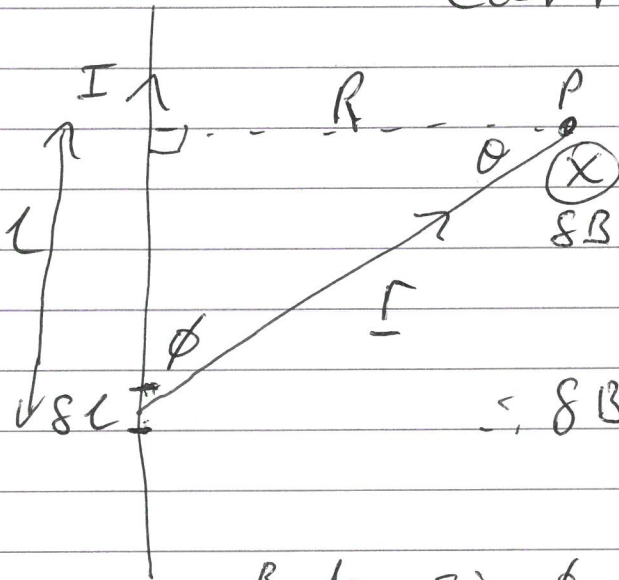 I
R
P
θ
δB
l
r
φ
δl
∴ δB